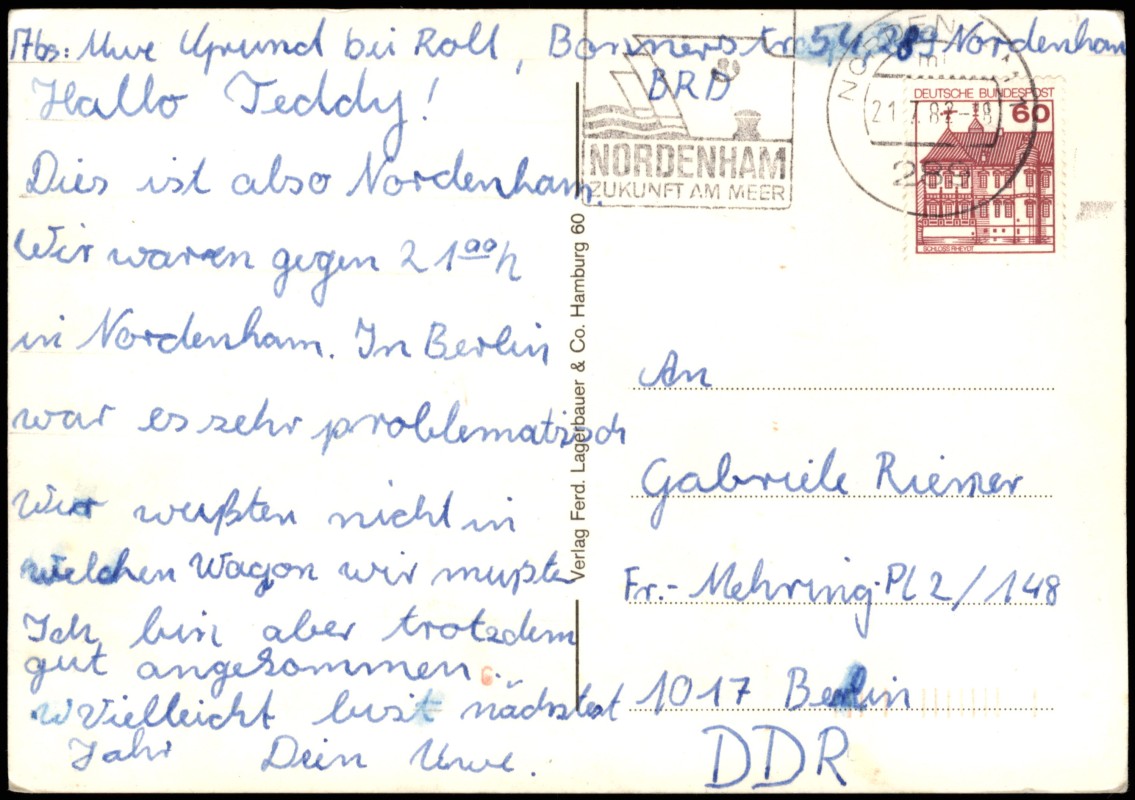 Abs: Uwe Uprund bei Roll, Bonnerstr 54, 289 Nordenham
BRD
Hallo Teddy!
Dies ist also Nordenham.
Wir waren gegen 21⁰⁰h
in Nordenham. In Berlin
war es sehr problematisch
Wir weußten nicht in
welchen Wagon wir mußten
Ich bin aber trotzdem
gut angekommen..
Vielleicht bist nächstest
Jahr Dein Uwe.
Verlag Ferd. Lagerbauer & Co. Hamburg 60
NORDENHAM
ZUKUNFT AM MEER
289
DEUTSCHE BUNDESPOST
60
SCHLOSS RHEYDT
An
Gabriele Riemer
Fr.-Mehring-Pl 2/148
1017 Berlin
DDR